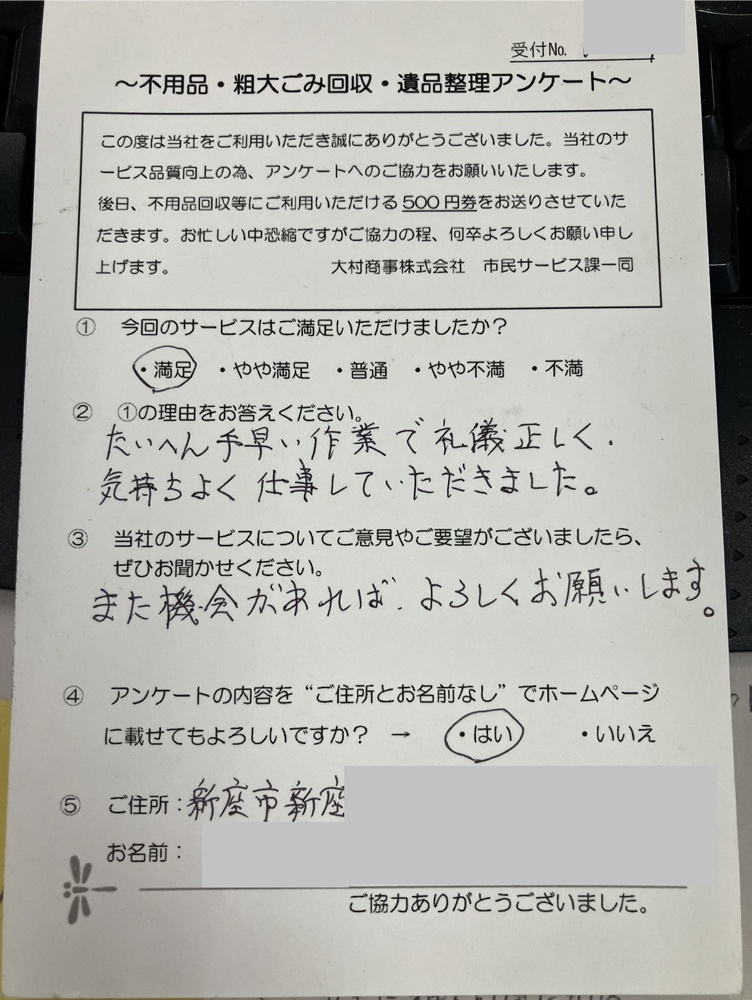 受付No.
～不用品・粗大ごみ回収・遺品整理アンケート～
この度は当社をご利用いただき誠にありがとうございました。当社のサ
ービス品質向上の為、アンケートへのご協力をお願いいたします。
後日、不用品回収等にご利用いただける500円券をお送りさせていた
だきます。お忙しい中恐縮ですがご協力の程、何卒よろしくお願い申し
上げます。 大村商事株式会社 市民サービス課一同
① 今回のサービスはご満足いただけましたか？
・満足 ・やや満足 ・普通 ・やや不満 ・不満
② ①の理由をお答えください。
たいへん手早い作業で礼儀正しく、
気持ちよく仕事していただきました。
③ 当社のサービスについてご意見やご要望がございましたら、
ぜひお聞かせください。
また機会があれば、よろしくお願いします。
④ アンケートの内容を“ご住所とお名前なし”でホームページ
に載せてもよろしいですか？ → ・はい ・いいえ
⑤ ご住所：新座市新座
お名前：
ご協力ありがとうございました。